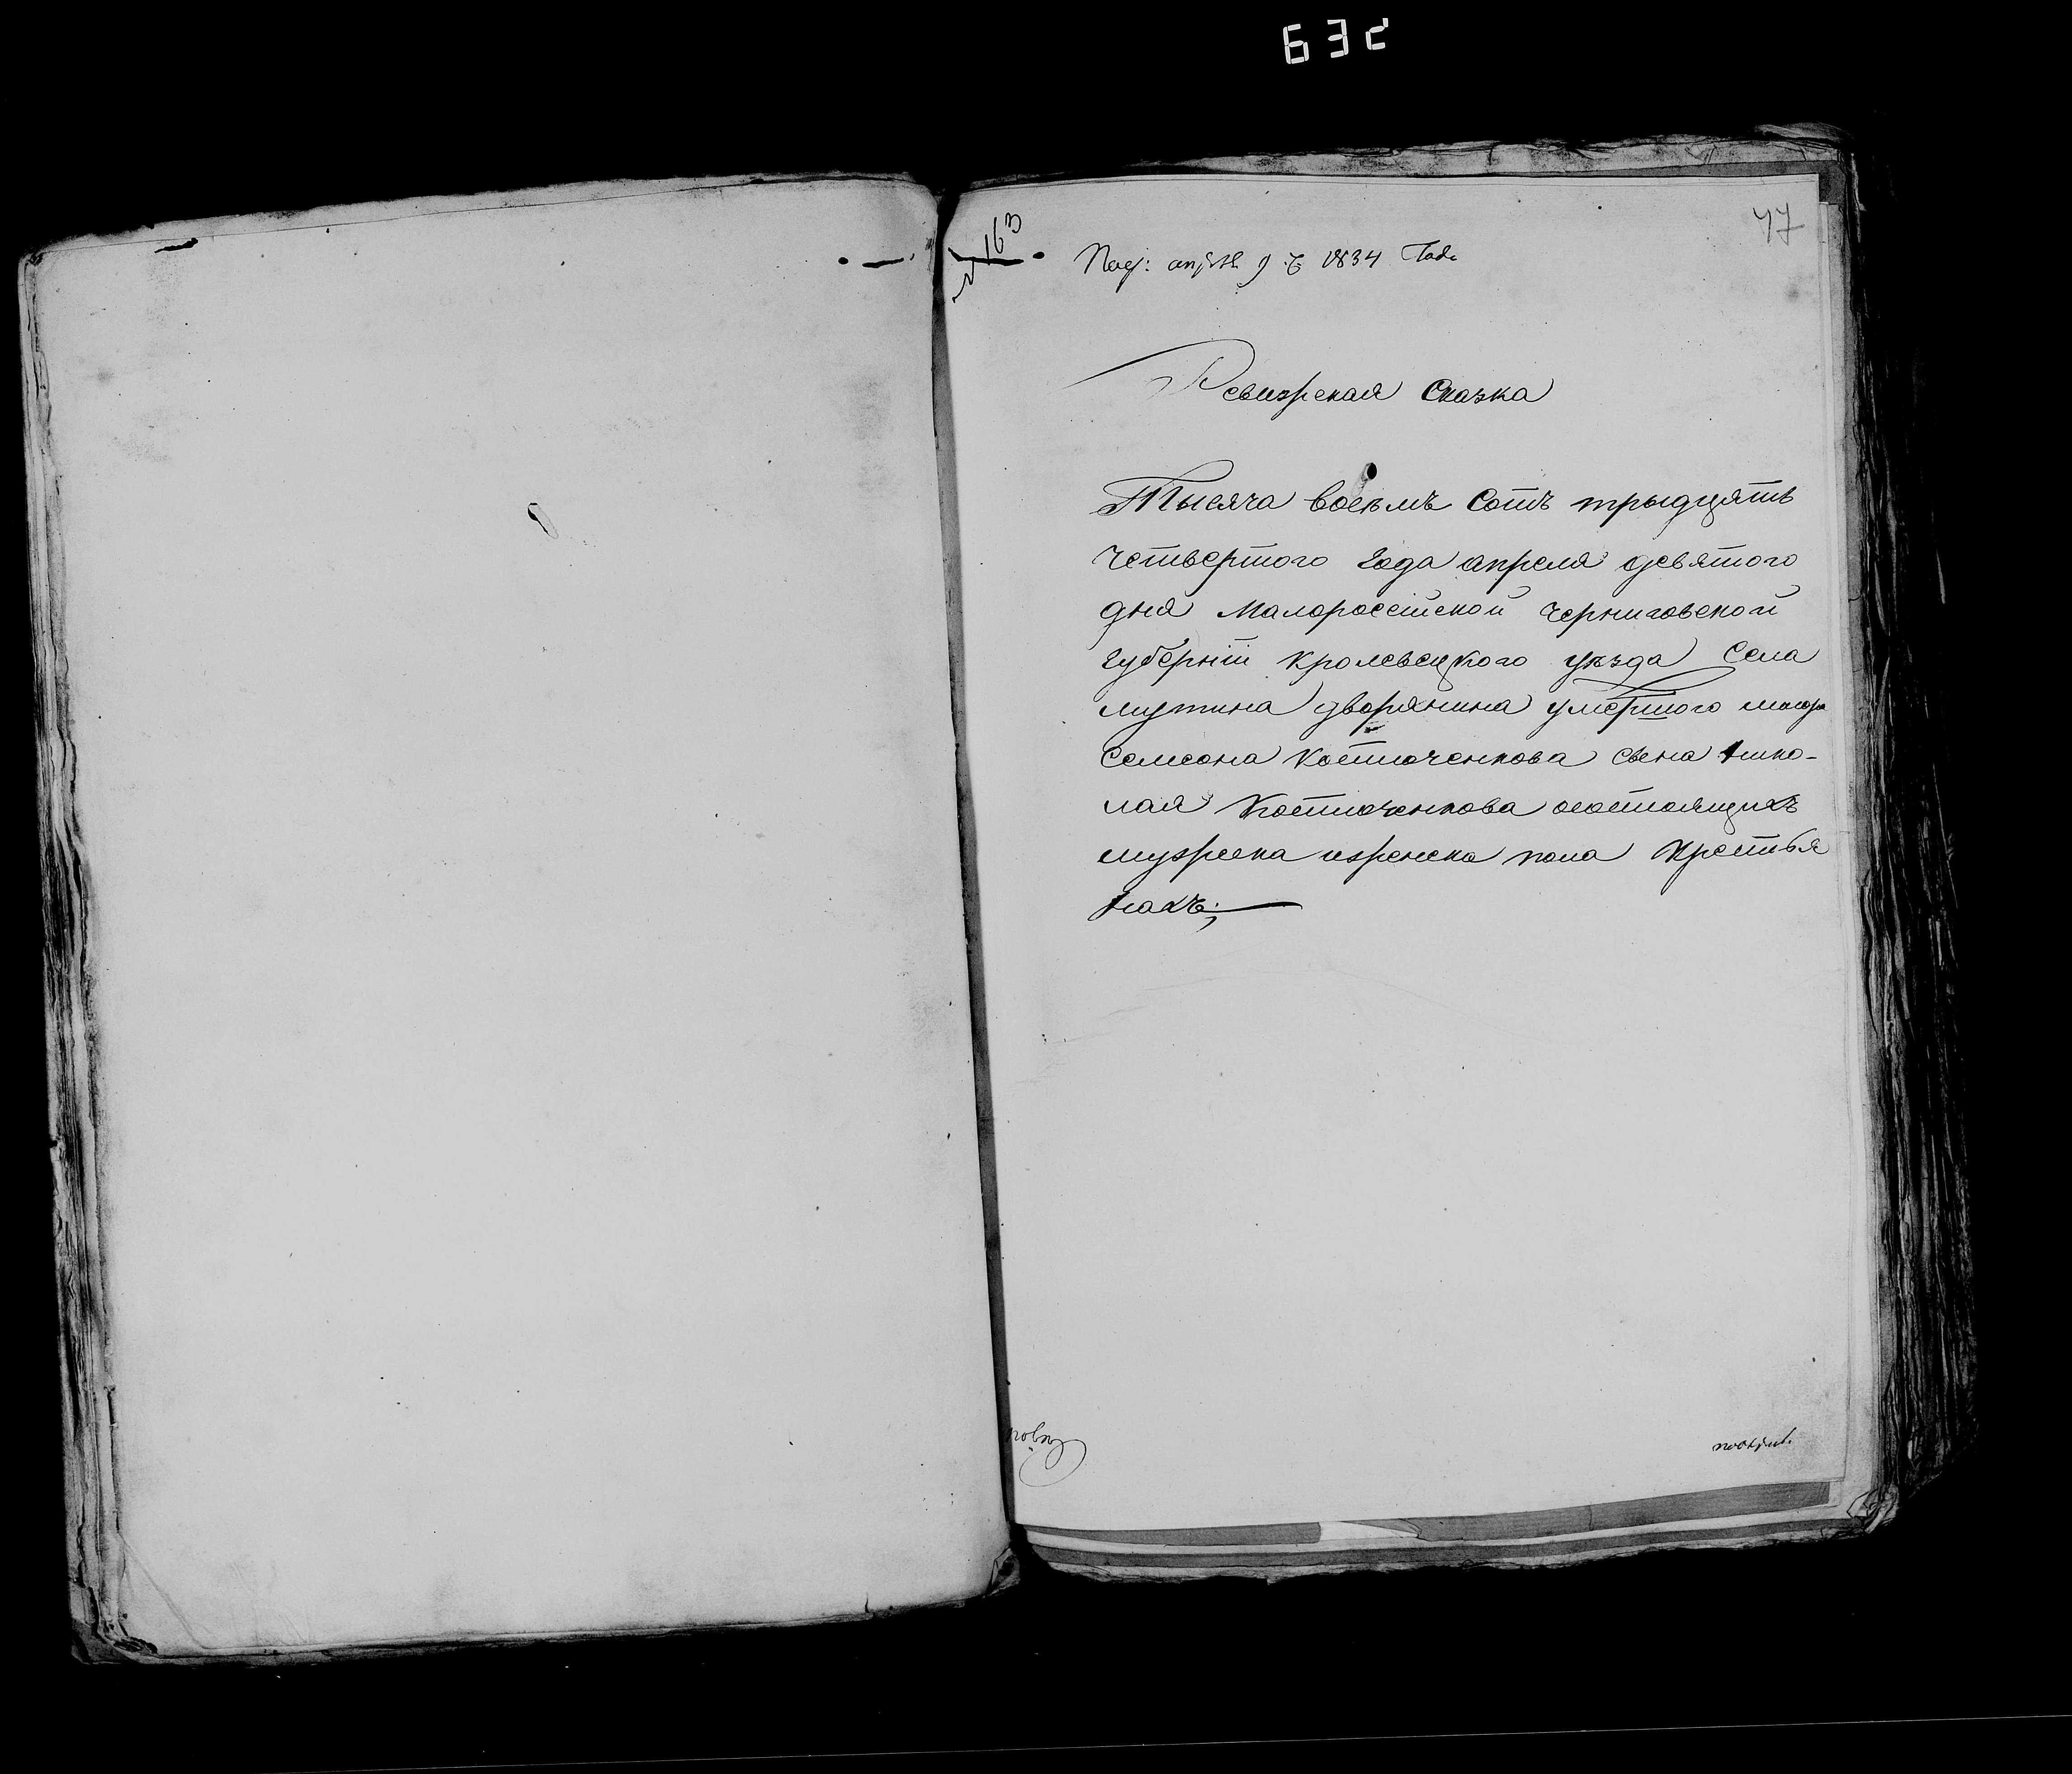 632
47
№ 163
Под: апреля 9 д. 1834 года
Ревизская Сказка
Тысяча восемъ Сотъ трыдцять
Четвертого года апреля девятого
дня Малоросейской Черниговской
губернїи Кролевецкого уезда Села
мутина дворянина умершого
Самсона Костюченкова Сына Нико-
лая Костюченкова осостоящихъ
мужеска иженска пола Крестья
нахъ;